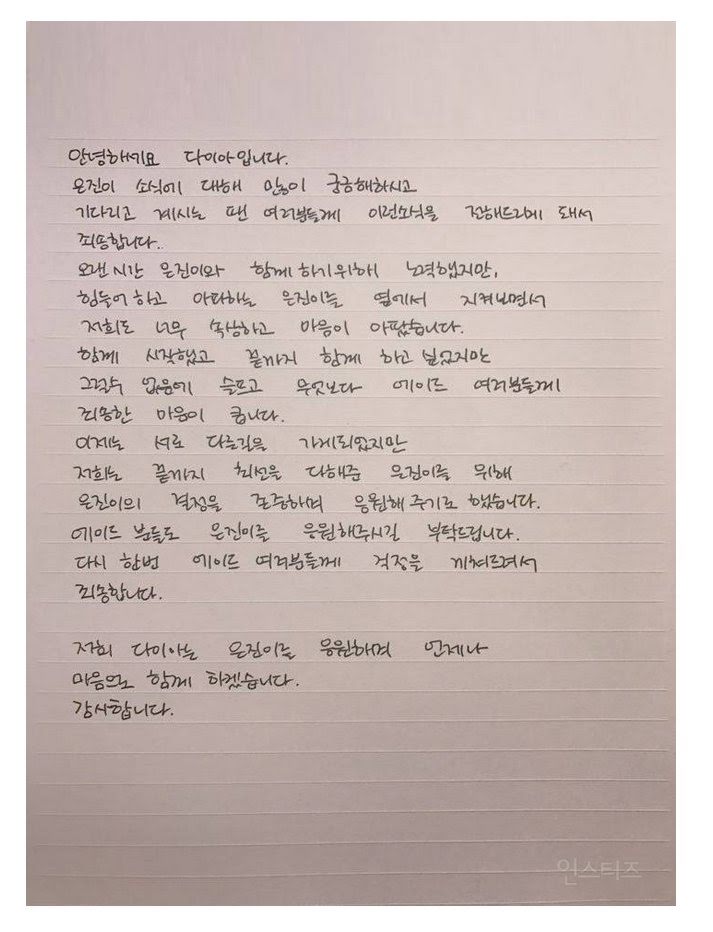 안녕하세요 다이아입니다.
은진이 소식에 대해 많이 궁금해하시고
기다리고 계시는 팬 여러분들께 이런소식을 전해드리게 돼서
죄송합니다..
오랜 시간 은진이와 함께 하기위해 노력했지만,
힘들어 하고 아파하는 은진이를 옆에서 지켜보면서
저희도 너무 속상하고 마음이 아팠습니다.
함께 시작했고 끝까지 함께 하고 싶었지만
그럴수 없음에 슬프고 무엇보다 에이드 여러분들께
죄송한 마음이 큽니다.
이제는 서로 다른길을 가게되었지만
저희는 끝까지 최선을 다해준 은진이를 위해
은진이의 결정을 존중하며 응원해 주기로 했습니다.
에이드 분들도 은진이를 응원해주시길 부탁드립니다.
다시 한번 에이드 여러분들께 걱정을 끼쳐드려서
죄송합니다.
저희 다이아는 은진이를 응원하며 언제나
마음으로 함께 하겠습니다.
감사합니다.
인스티즈